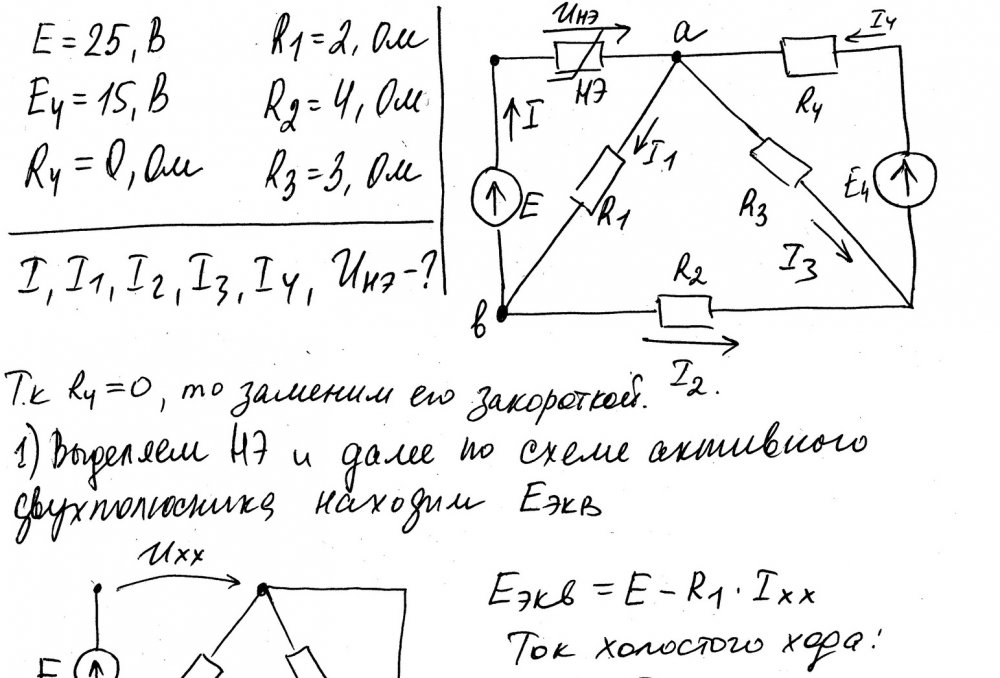 E = 25, В
R1 = 2, Ом
E4 = 15, В
R2 = 4, Ом
R4 = 0, Ом
R3 = 3, Ом
I, I1, I2, I3, I4, Uнэ - ?
Uнэ
a
I4
НЭ
R4
I
I1
E
R1
R3
E4
I3
R2
в
I2
Т.к R4 = 0, то заменим его закороткой.
1) Выделяем НЭ и далее по схеме активного
двухполюсника находим Eэкв
Uхх
Eэкв = E - R1 · Iхх
Ток холостого хода:
E